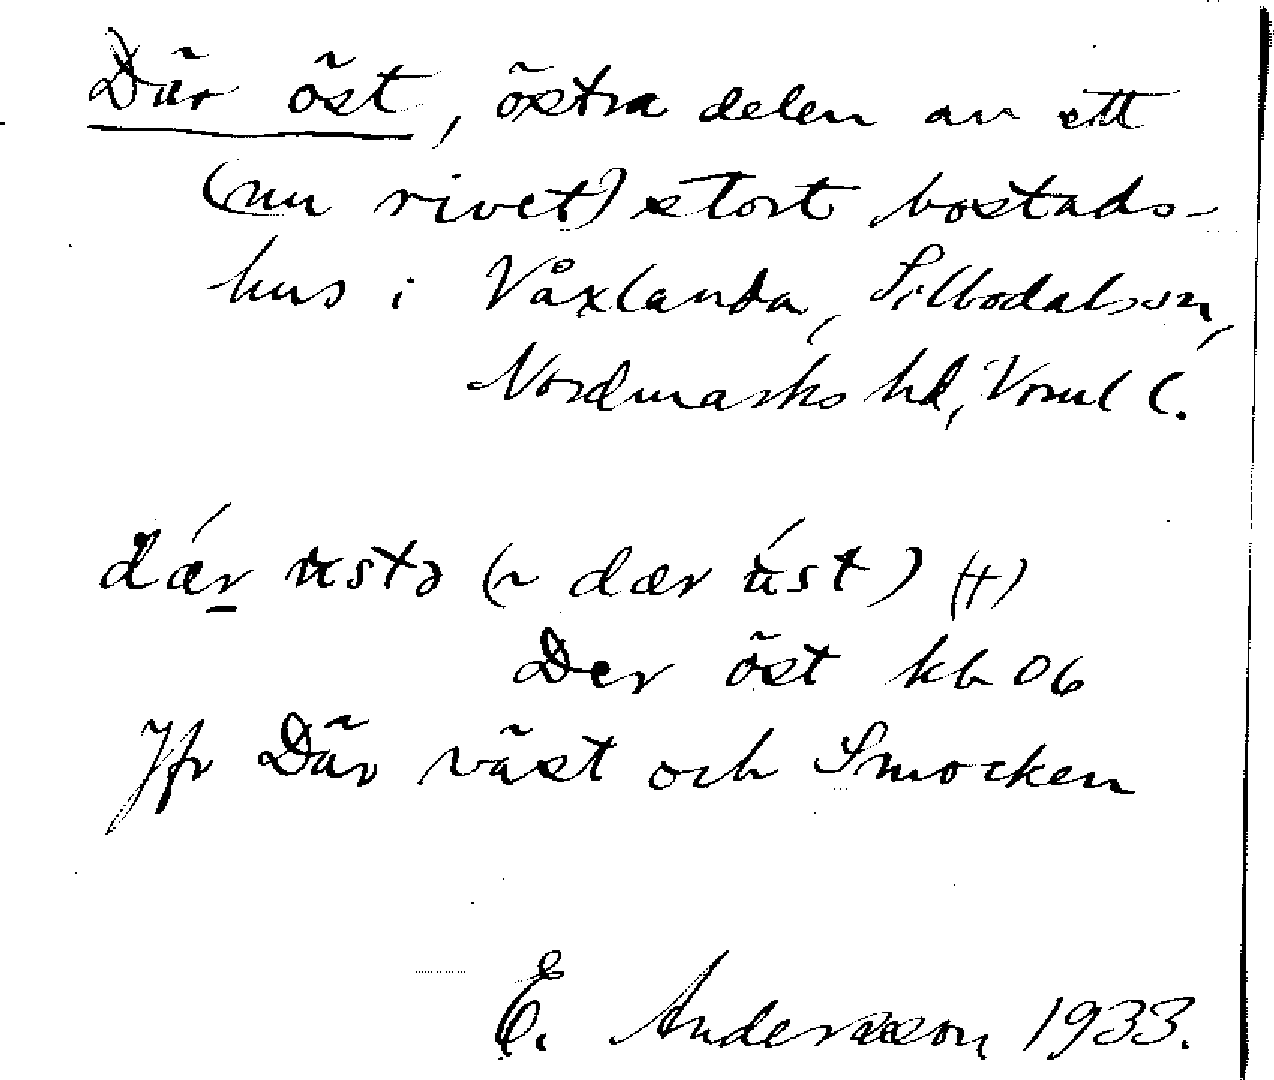 Där öst, östra delen av ett
(nu rivet) stort bostads-
hus i Våxlanda, Silbodals sn,
Nordmarks hd, Vrml l.
dǽr ustə (~ dær úst) (+)
Der öst kb 06
Jfr Där väst och Smocken
E. Andersson 1933.